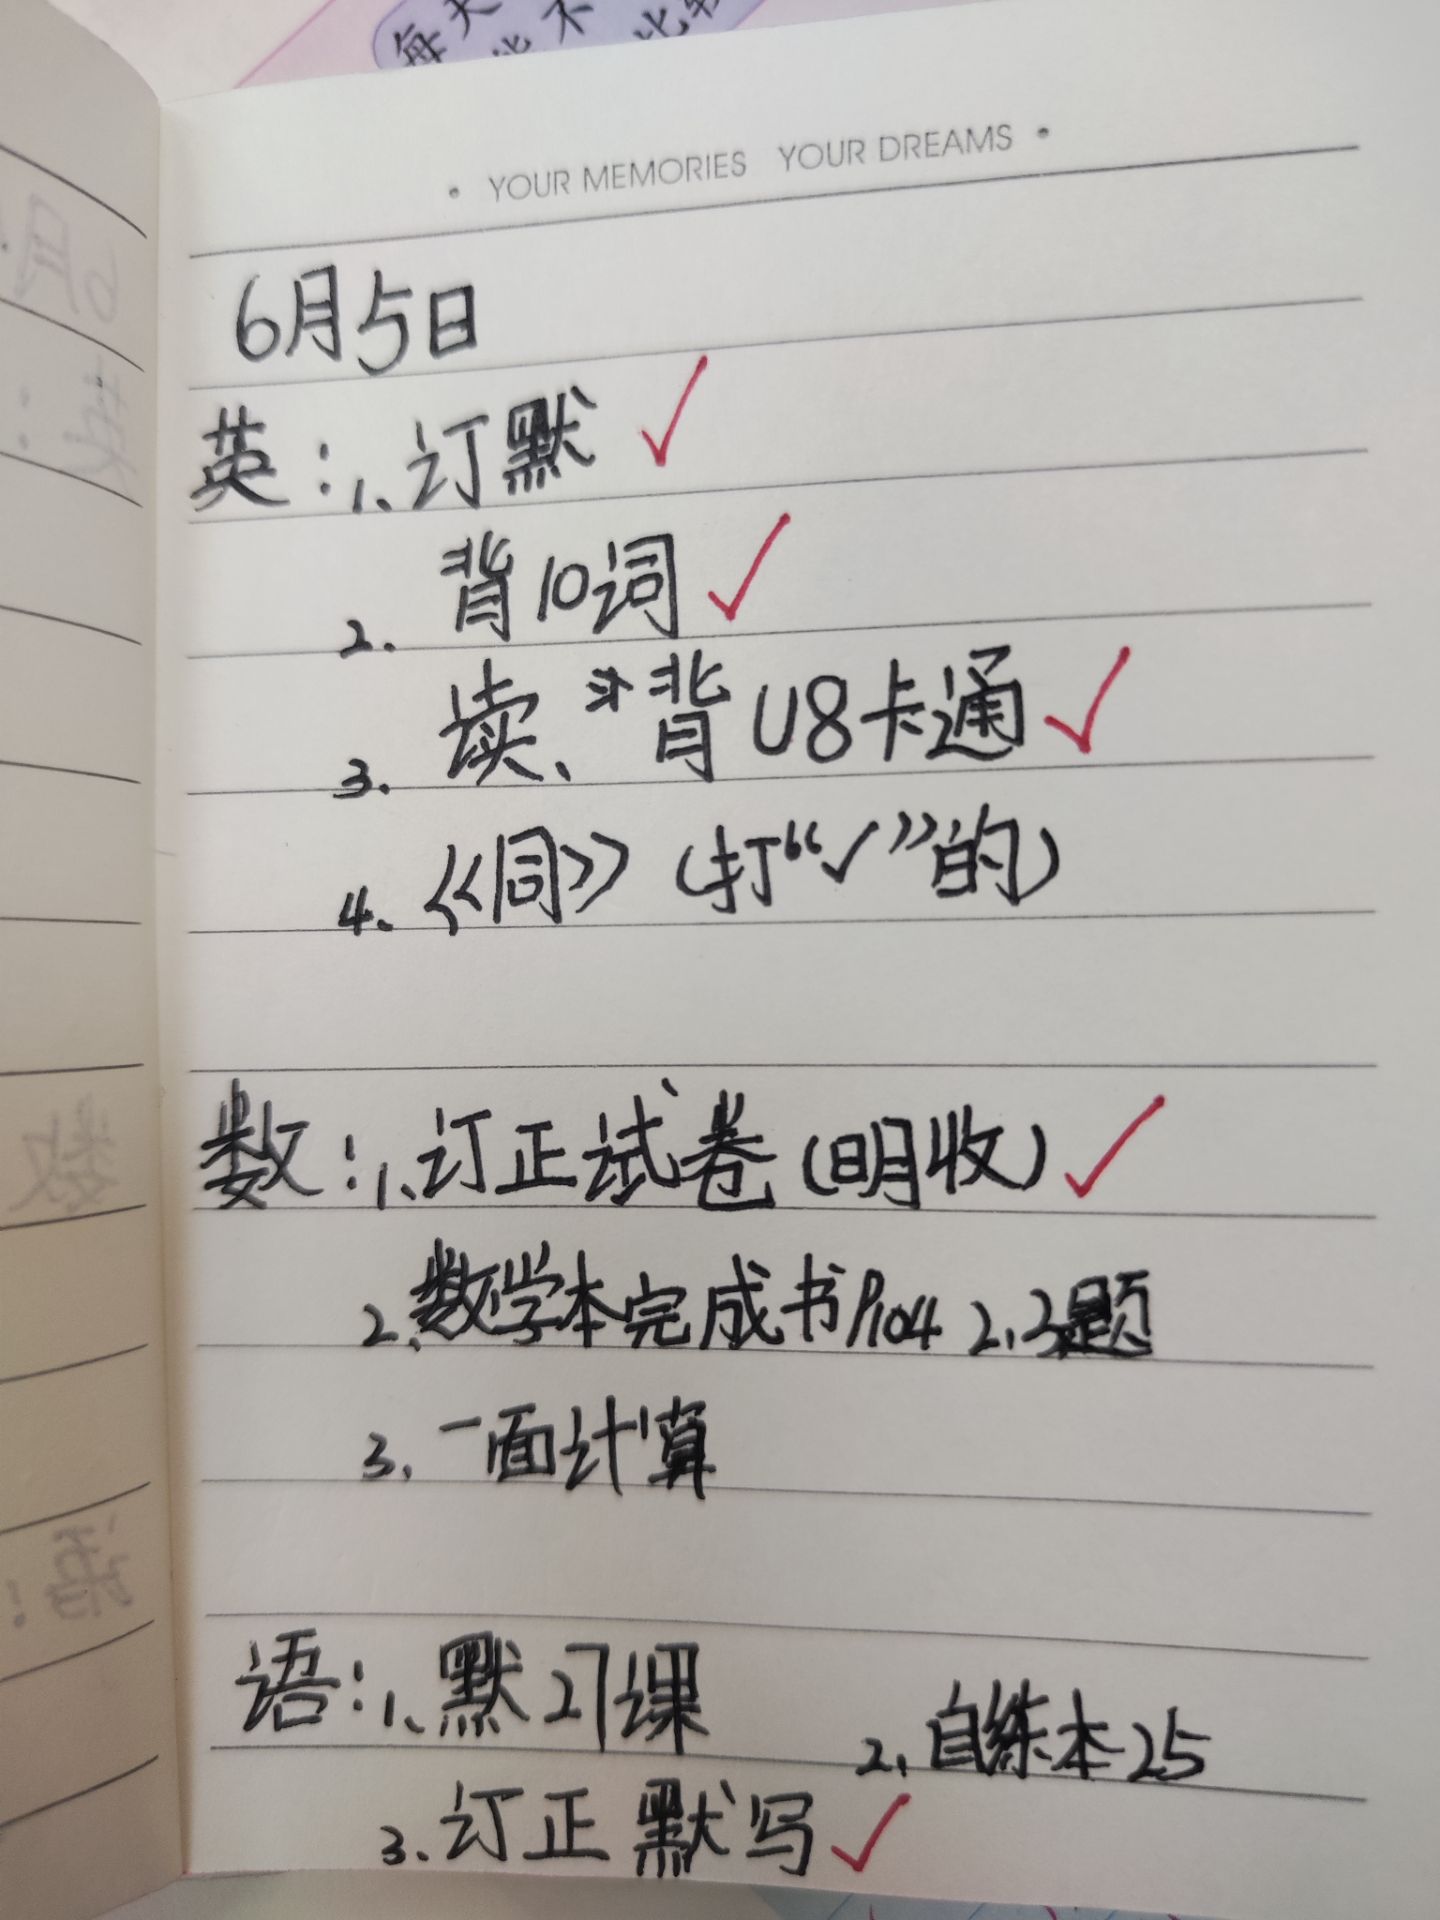 每天
• YOUR MEMORIES YOUR DREAMS •
6月5日
英:1、订默 ✓
2. 背10词 ✓
3. 读、背U8卡通 ✓
4. 《同》(打“✓”的)
数:1、订正试卷(明收) ✓
2、数学本完成书P104 2、3题
3、一面计算
语:1、默27课
2、自练本25
3. 订正默写 ✓